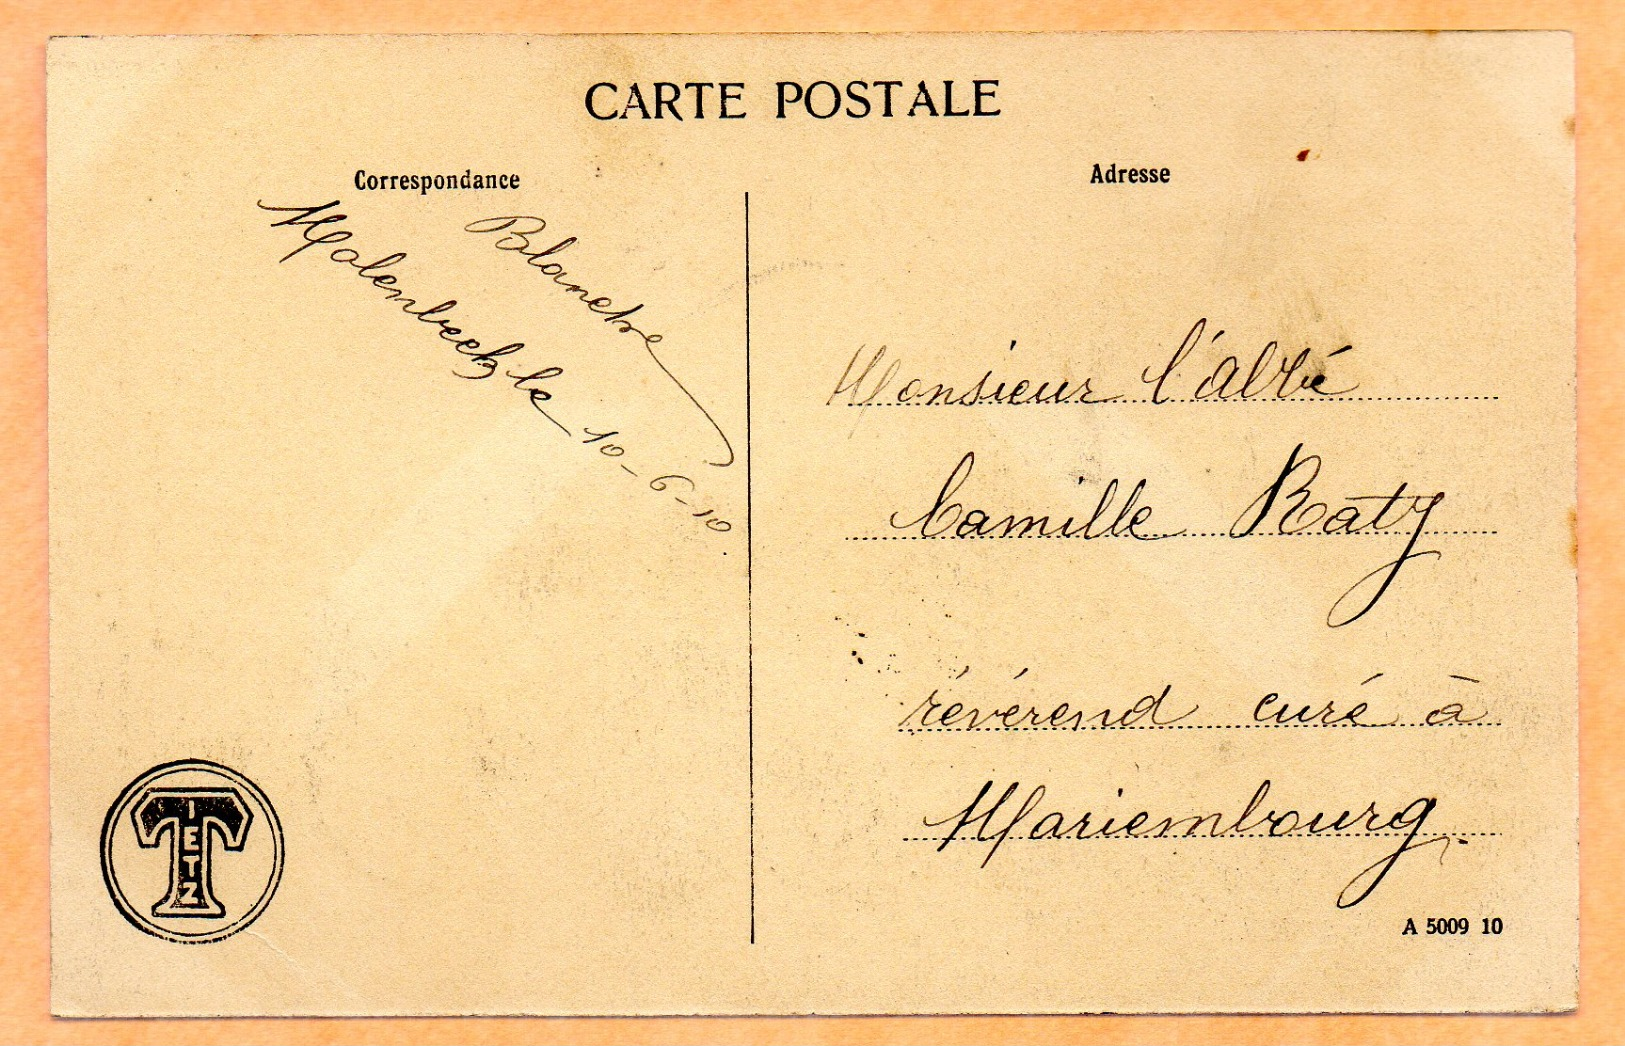 CARTE POSTALE
Correspondance
Adresse
Blanche
Molenbeek le 10-6-10
Monsieur l'abbé
Camille Raty
révérend curé à
Mariembourg.
TIETZ
A 5009 10